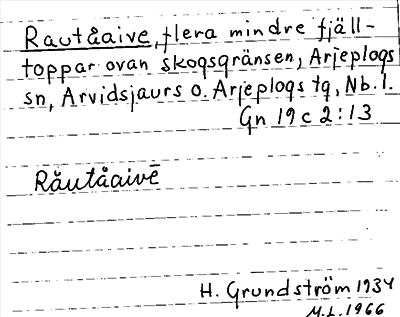 Rautåive, flera mindre fjäll-
toppar ovan skogsgränsen, Arjeplogs
sn, Arvidsjaurs o. Arjeplogs tg, Nb. l.
Gn 19 c 2:13
Răutåivē
H. Grundström 1934
M.L. 1966